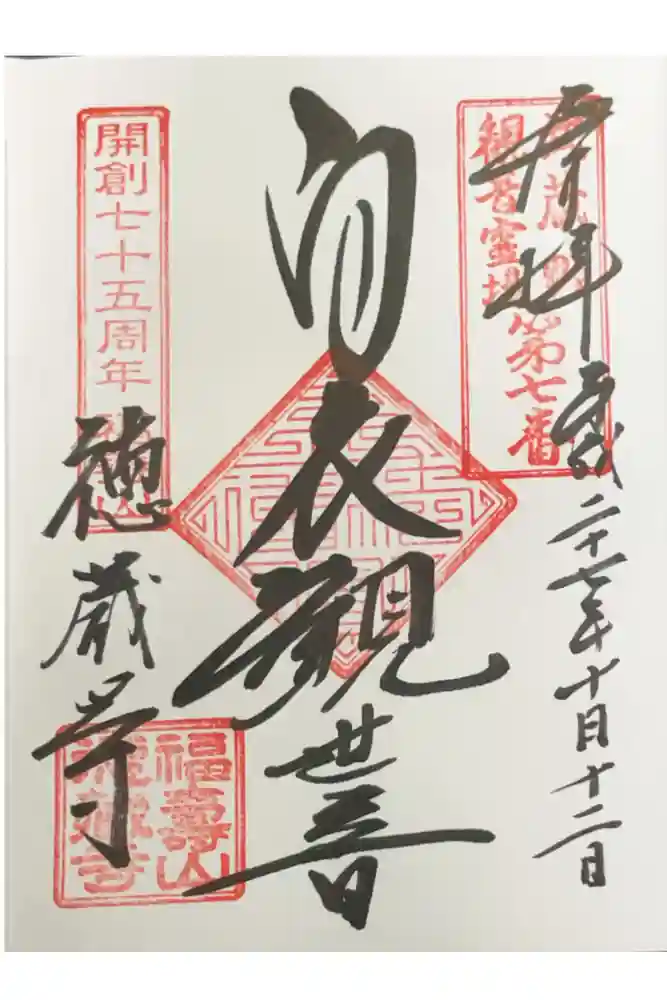 奉拝
平成二十七年十月十二日
武蔵野
観音霊場
第七番
白衣觀世音
開創七十五周年
徳蔵寺
福壽山
徳蔵寺